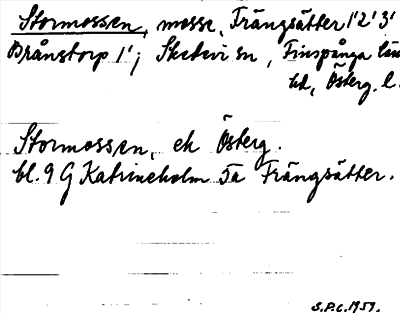 Stormossen, mosse, Frängsätter 1' 2' 3'
Brånstorp 1'; Skedevi sn, Finspånga län
hd, Österg. l.
Stormossen, ek Österg.
bl. 9 G Katrineholm 5a Frängsätter.
S.P.C. 1959.